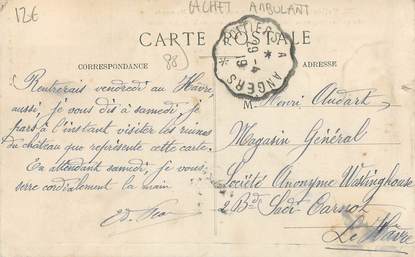 12€
CACHET AMBULANT
CARTE POSTALE
CORRESPONDANCE
ADRESSE
88
POITIERS A ANGERS
9-4
19
Rentrerais vendredi au Hâvre,
aussi, je vous dis à samedi, je
pars à l'instant visiter les ruines
du château que représente cette carte.
En attendant samedi, je vous
serre cordialement la main
M. Henri Audart
Magasin Général
Société Anonyme Westinghouse
2 Bd Sadi-Carnot
Le Hâvre